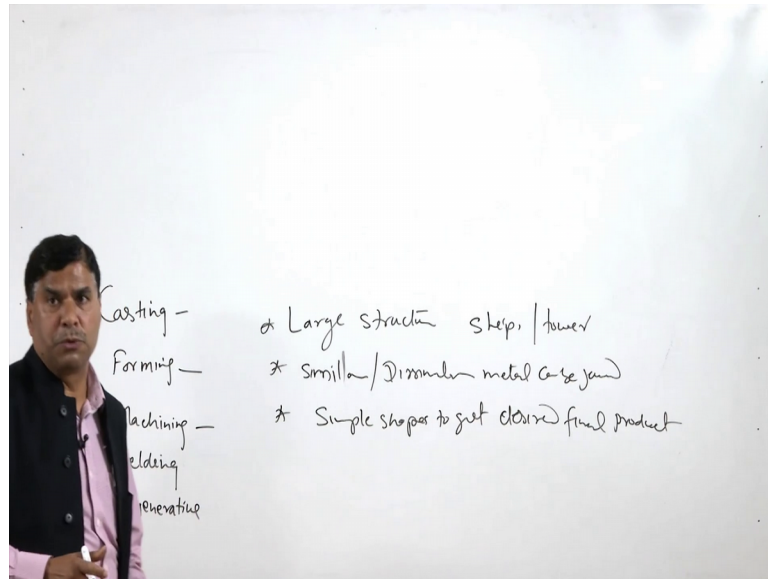 Casting -
Forming -
Machining -
elding
generative
* Large structu ship, / tower
* Simillar / Dissimilar metal can be joined
* Simple shapes to get desired final product